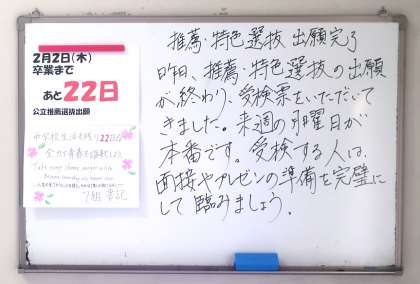 2月2日(木)
卒業まで
あと22日
公立推薦選抜出願
中学校生活も残り22日!!
全力で青春を謳歌しよう
7組 書記
推薦・特色選抜 出願完了
昨日、推薦・特色選抜の出願
が終わり、受検票をいただいて
きました。来週の月曜日が
本番です。受検する人は、
面接やプレゼンの準備を完璧に
して臨みましょう。